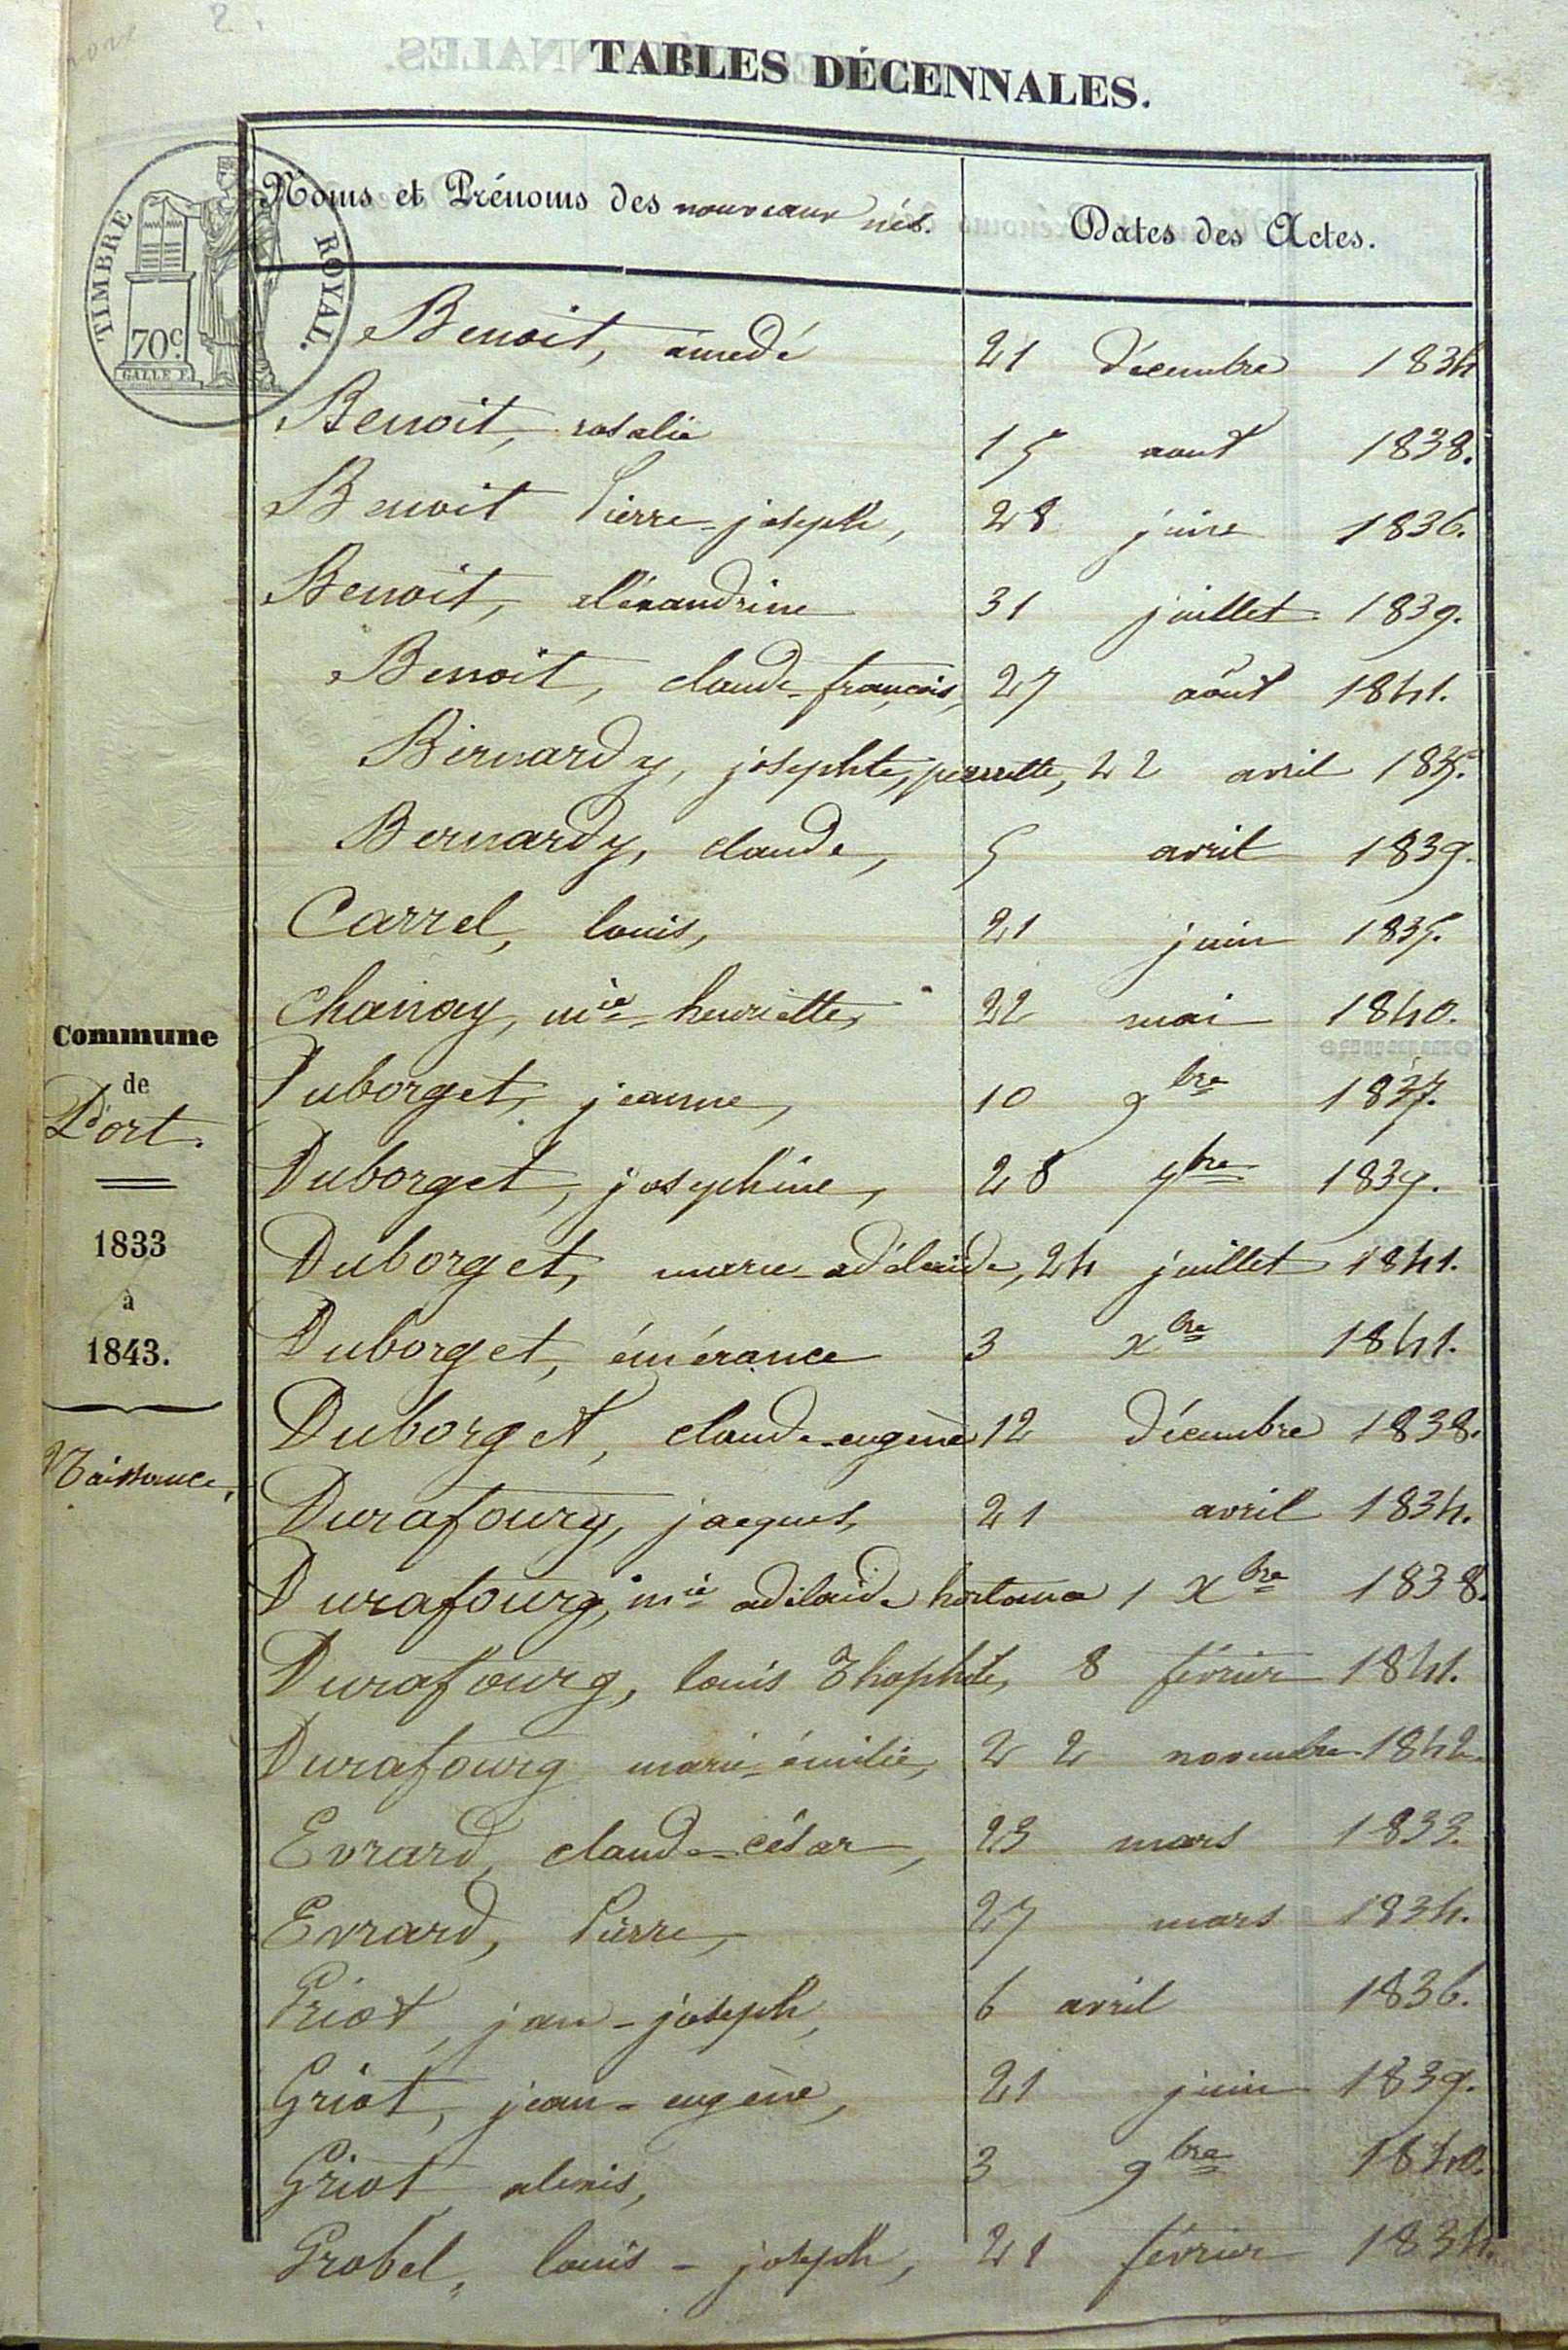 2.
TABLES DÉCENNALES.
TIMBRE ROYAL.
70c.
GALLE F.
Noms et Prénoms des nouveaux nés.
Dates des Actes.
Benoit, amedé 21 décembre 1834
Benoit, rosalie 15 aout 1838.
Benoit Pierre-joseph, 28 juin 1836.
Benoit, aléxandrine 31 juillet 1839.
Benoit, claude-françois, 27 août 1841.
Bernardy, josephte, pierrette, 22 avril 1835.
Bernardy, claude, 5 avril 1839.
Carrel, louis, 21 juin 1835.
Chanay, mie-henriette, 22 mai 1840.
Duborget, jeanne, 10 9bre 1837.
Duborget, joséphine, 28 9bre 1839.
Duborget, marie-adélaide, 24 juillet 1841.
Duborget, émérance 3 xbre 1841.
Duborget, claude-eugène 12 décembre 1838.
Durafourg, jacques, 21 avril 1834.
Durafourg, mie adélaide hortance 1 Xbre 1838.
Durafourg, louis Thophile, 8 février 1841.
Durafourg marie-émilie, 22 novembre 1842.
Evrard, claude-césar, 23 mars 1833.
Evrard, Pierre, 27 mars 1834.
Griot, jean-joseph, 6 avril 1836.
Griot, jean-eugène, 21 juin 1839.
Griot, alexis, 3 9bre 1840.
Grobel, louis-joseph, 21 février 1834.
Commune
de
Port.
1833
à
1843.
Naissance.